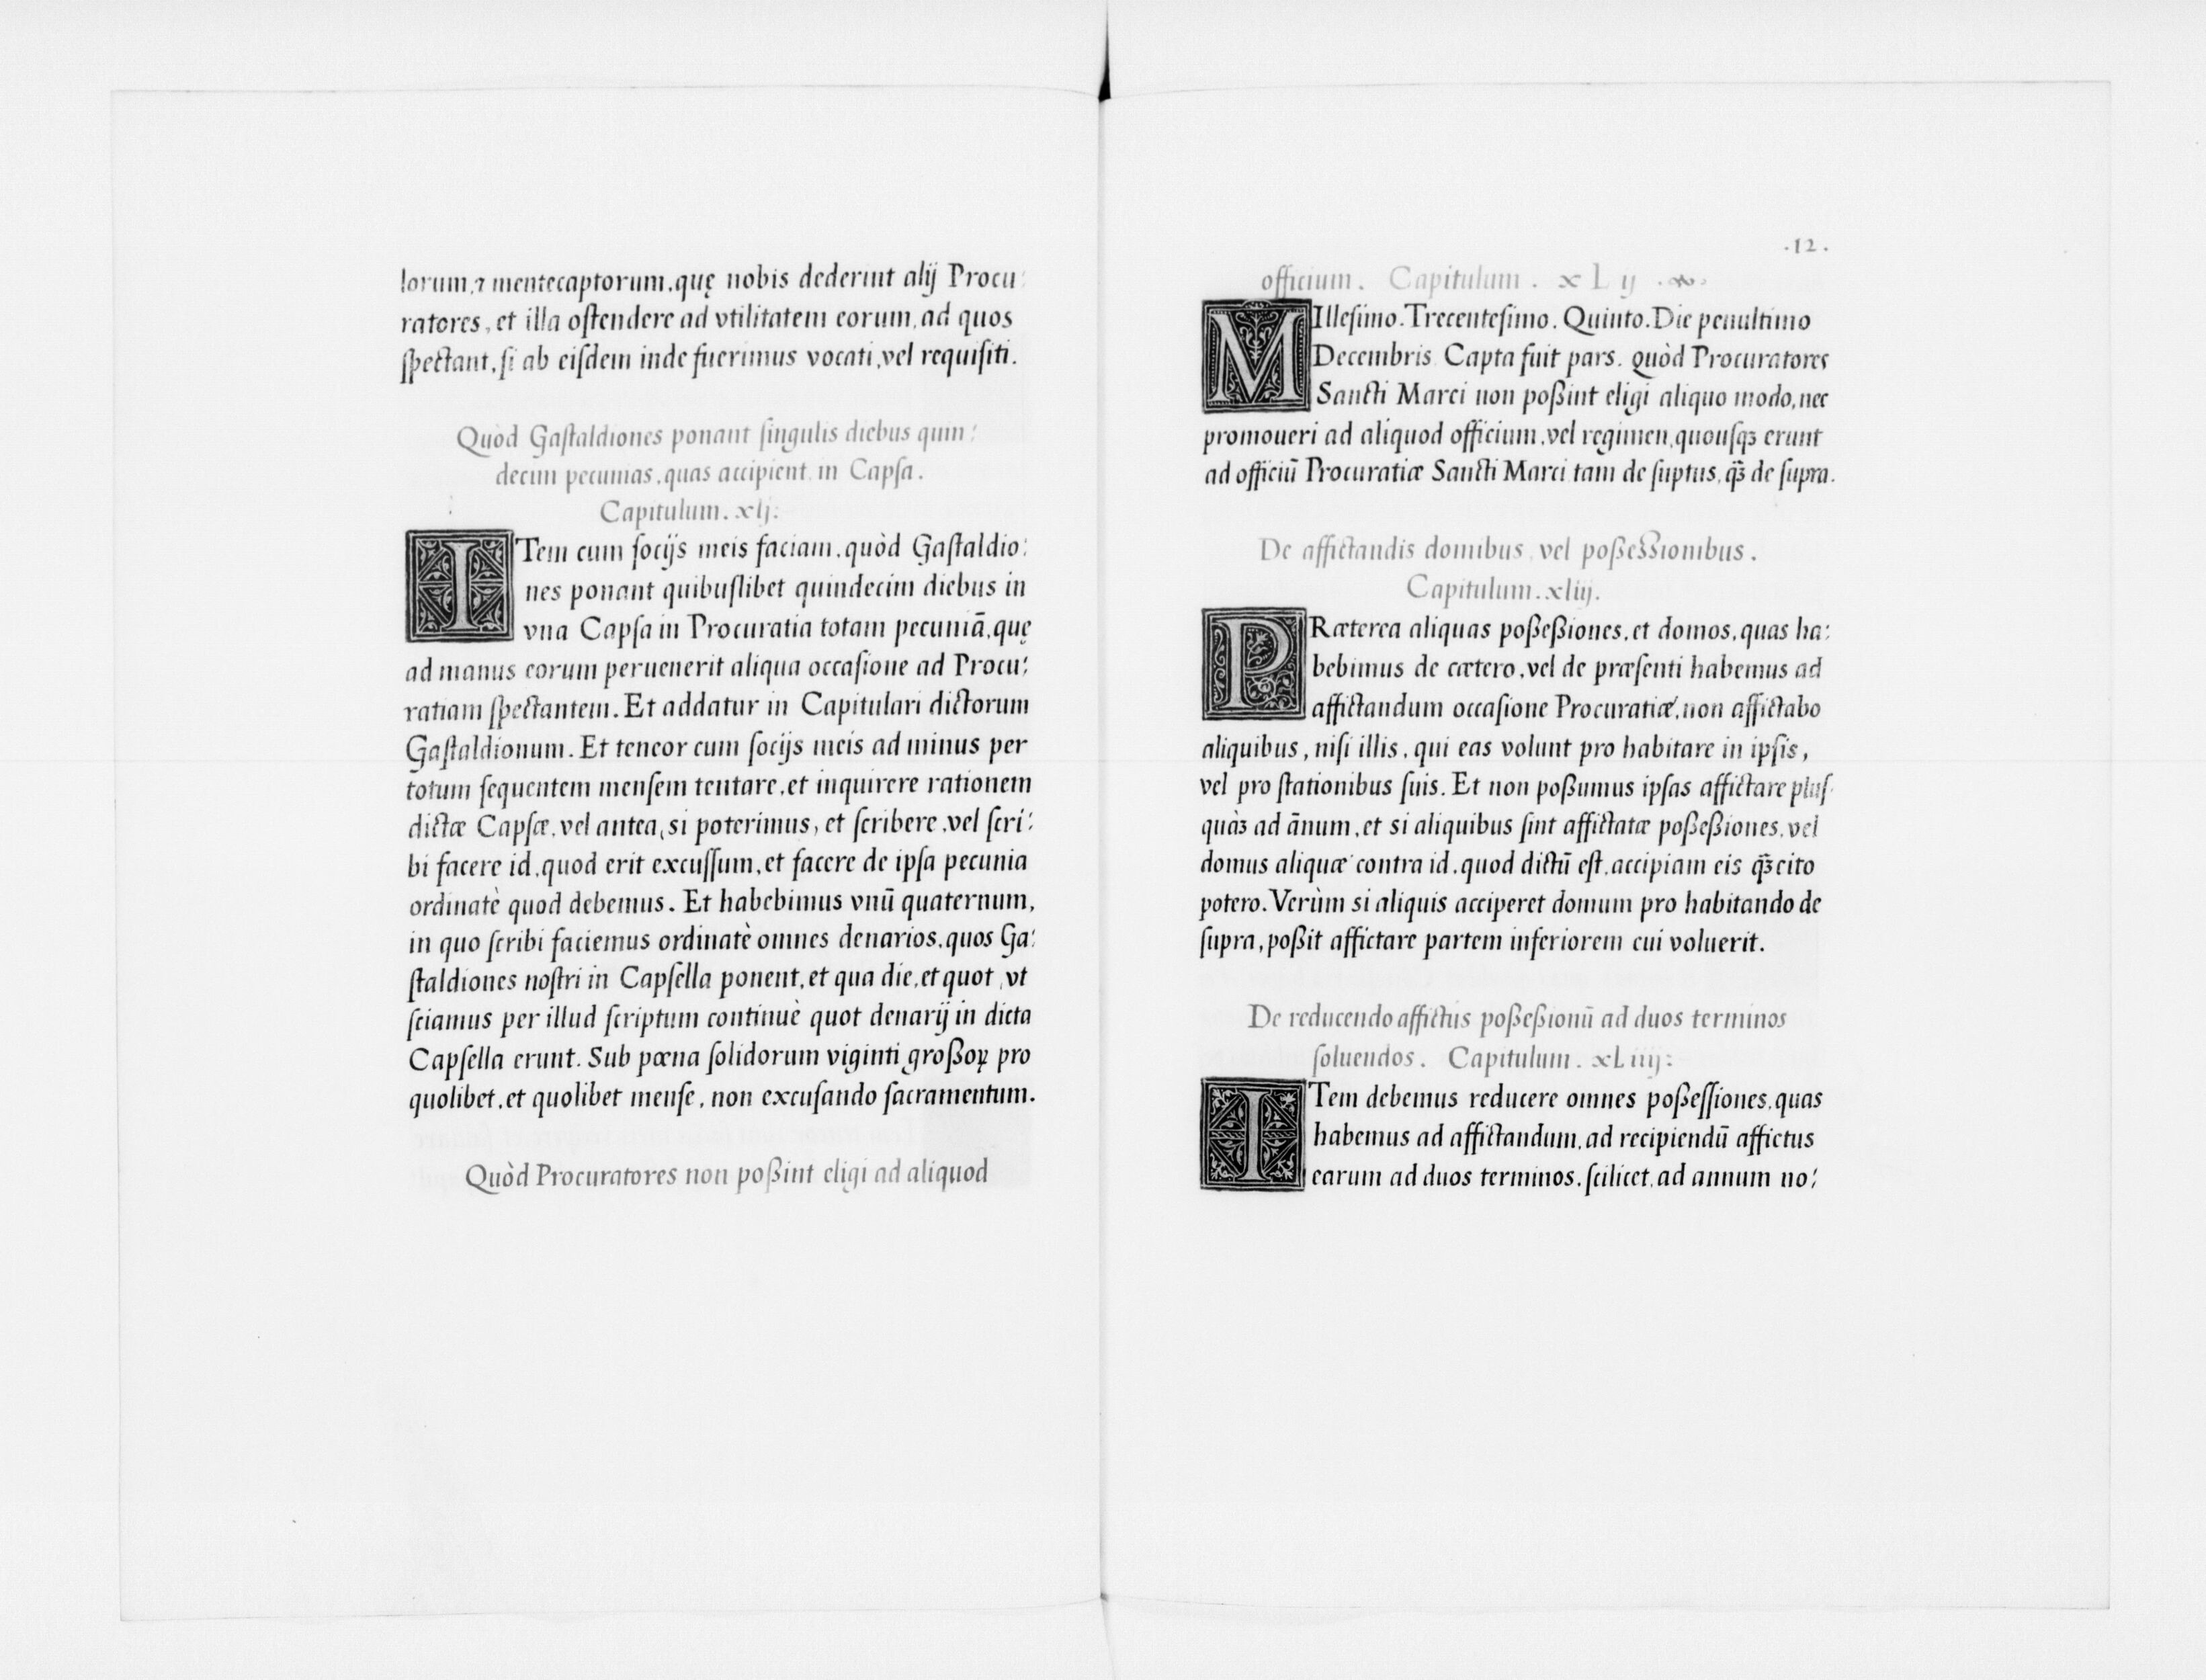 lorum, ⁊ mentecaptorum, quę nobis dederint alij Procu:
ratores, et illa oſtendere ad vtilitatem eorum, ad quos
ſpectant, ſi ab eiſdem inde fuerimus vocati, vel requiſiti.
Quòd Gaſtaldiones ponant ſingulis diebus quin:
decim pecunias, quas accipient in Capſa.
Capitulum. xlj.
ITem cum ſocijs meis faciam, quòd Gaſtaldio:
nes ponant quibuſlibet quindecim diebus in
vna Capſa in Procuratia totam pecuniā, quę
ad manus eorum peruenerit aliqua occaſione ad Procu:
ratiam ſpectantem. Et addatur in Capitulari dictorum
Gaſtaldionum. Et teneor cum ſocijs meis ad minus per
totum ſequentem menſem tentare, et inquirere rationem
dictæ Capſæ, vel antea, si poterimus, et ſcribere, vel ſcri:
bi facere id, quod erit excuſſum, et facere de ipſa pecunia
ordinatè quod debemus. Et habebimus vnū quaternum,
in quo ſcribi faciemus ordinatè omnes denarios, quos Ga:
ſtaldiones noſtri in Capſella ponent, et qua die, et quot, vt
ſciamus per illud ſcriptum continuè quot denarij in dicta
Capſella erunt. Sub pœna ſolidorum viginti großoꝝ pro
quolibet, et quolibet menſe, non excuſando ſacramentum.
Quòd Procuratores non poßint eligi ad aliquod
.12.
officium. Capitulum. xLij
MIlleſimo. Trecenteſimo. Quinto. Die penultimo
Decembris Capta fuit pars. quòd Procuratores
Sancti Marci non poßint eligi aliquo modo, nec
promoueri ad aliquod officium, vel regimen, quouſqꝫ erunt
ad officiū Procuratiæ Sancti Marci tam de ſuptus, q̄ꝫ de ſupra.
De affictandis domibus, vel poßeßionibus.
Capitulum. xliij.
PRæterea aliquas poßeßiones, et domos, quas ha:
bebimus de cætero, vel de præſenti habemus ad
affictandum occaſione Procuratiæ, non affictabo
aliquibus, niſi illis, qui eas volunt pro habitare in ipſis,
vel pro ſtationibus ſuis. Et non poßumus ipſas affictare pluſ
quàꝫ ad ānum, et si aliquibus ſint affictatæ poßeßiones, vel
domus aliquæ contra id, quod dictū eſt, accipiam eis q̄ꝫ cito
potero. Verùm si aliquis acciperet domum pro habitando de
ſupra, poßit affictare partem inferiorem cui voluerit.
De reducendo affictus poßeßionū ad duos terminos
ſoluendos. Capitulum. xLiiij:
ITem debemus reducere omnes poßeſſiones, quas
habemus ad affictandum, ad recipiendū affictus
earum ad duos terminos, ſcilicet, ad annum no: